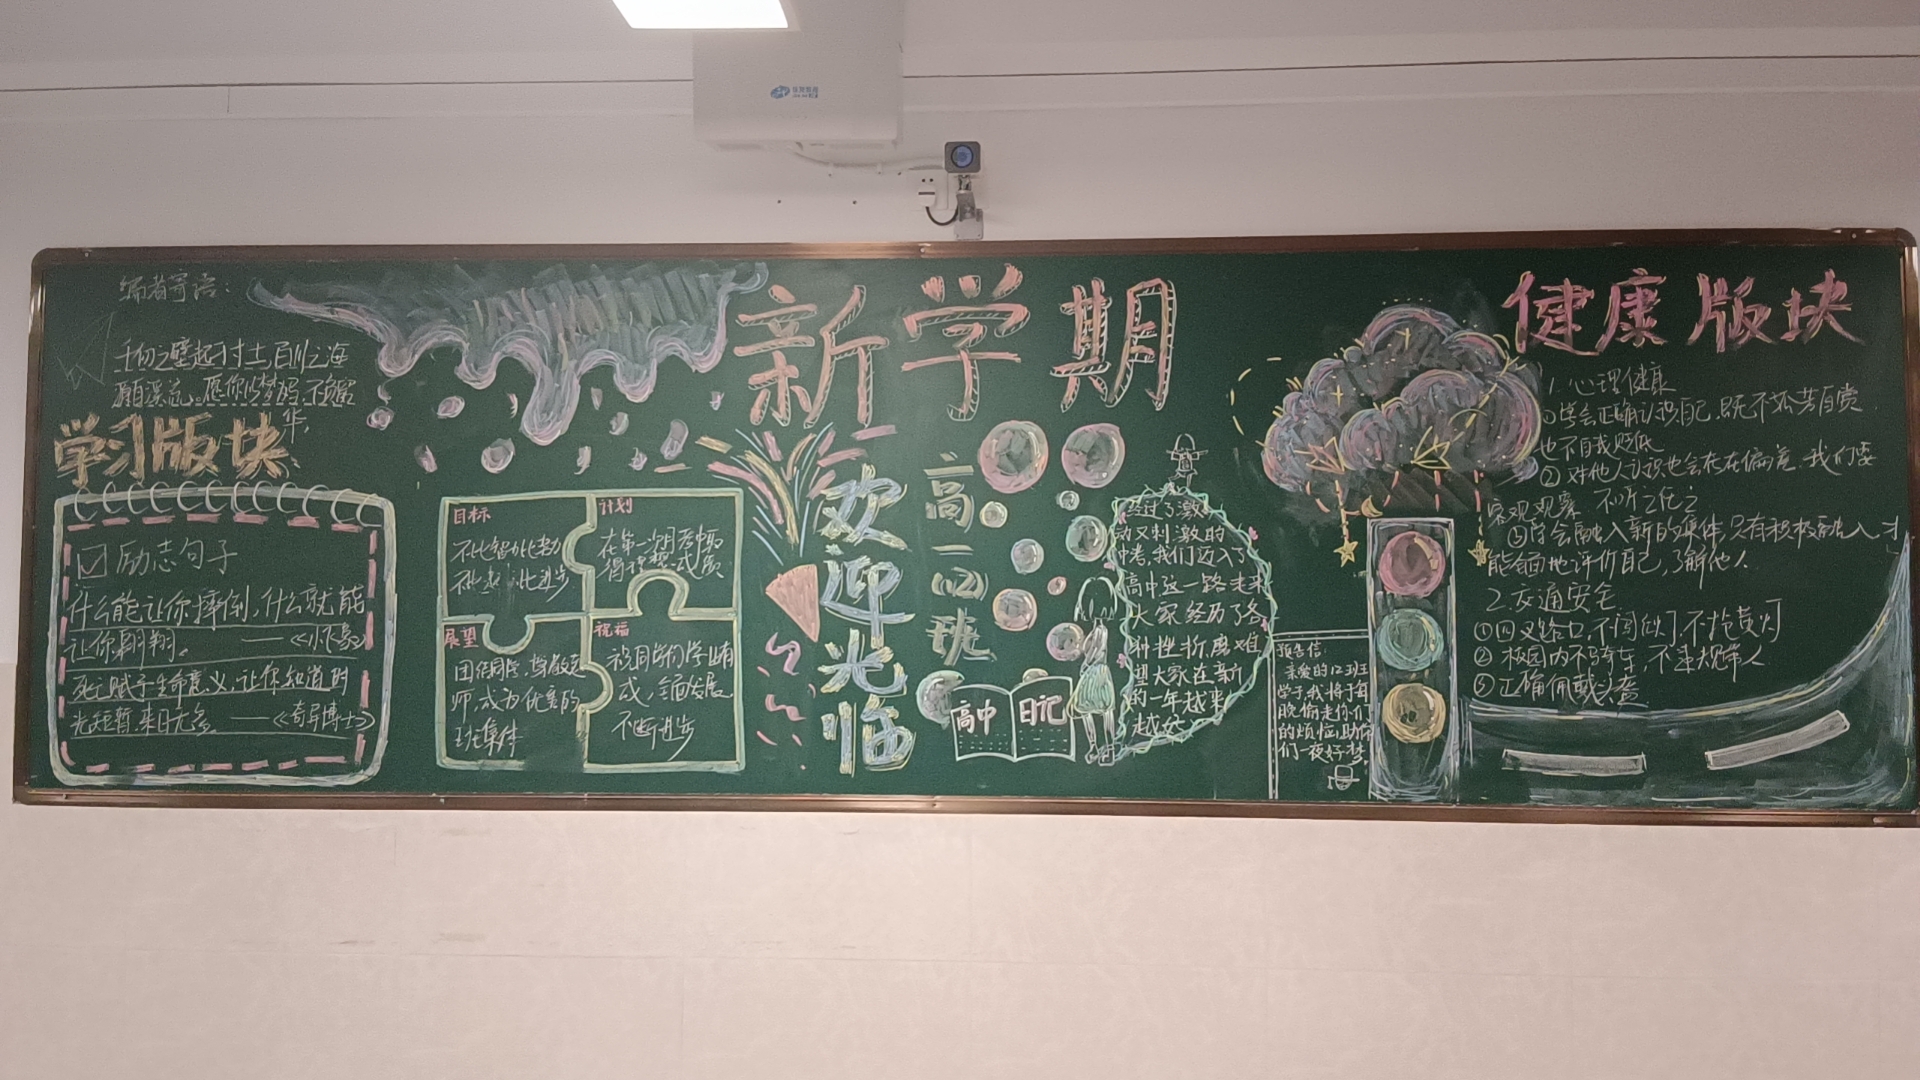 编者寄语:
千仞之壁起于寸土,百川之海
源自溪流。愿你以梦为马,不负韶
华,
学习版块
励志句子
什么能让你摔倒,什么就能
让你翱翔。——《小飞象》
死亡赋予生命意义,让你知道时
光短暂,来日无多。——《奇异博士》
新学期
目标
不比智力比努力
不比 比进步
计划
在第一次月考中取
得理想成绩
展望
团结同学,尊敬老
师,成为优秀的
班集体
祝福
祝同学们学业有
成,全面发展,
不断进步
欢迎光临
高一(12)班
高中
日记
经过了激
动又刺激的
中考,我们迈入了
高中这一路走来
大家经历了各
种挫折磨难
望大家在新
的一年越来
越好
预告信
亲爱的12班
学子,我将于每
晚偷走你们
的烦恼,助你
们一夜好梦
健康版块
1.心理健康
①学会正确认识自己,既不孤芳自赏
也不自我贬低
②对他人认识也会存在偏差,我们要
客观观察 不听之任之
③学会融入新的集体,只有积极融入才
能全面地评价自己,了解他人
2.交通安全
①四叉路口,不闯红灯,不抢黄灯
②校园内不骑车,不违规带人
③正确佩戴头盔